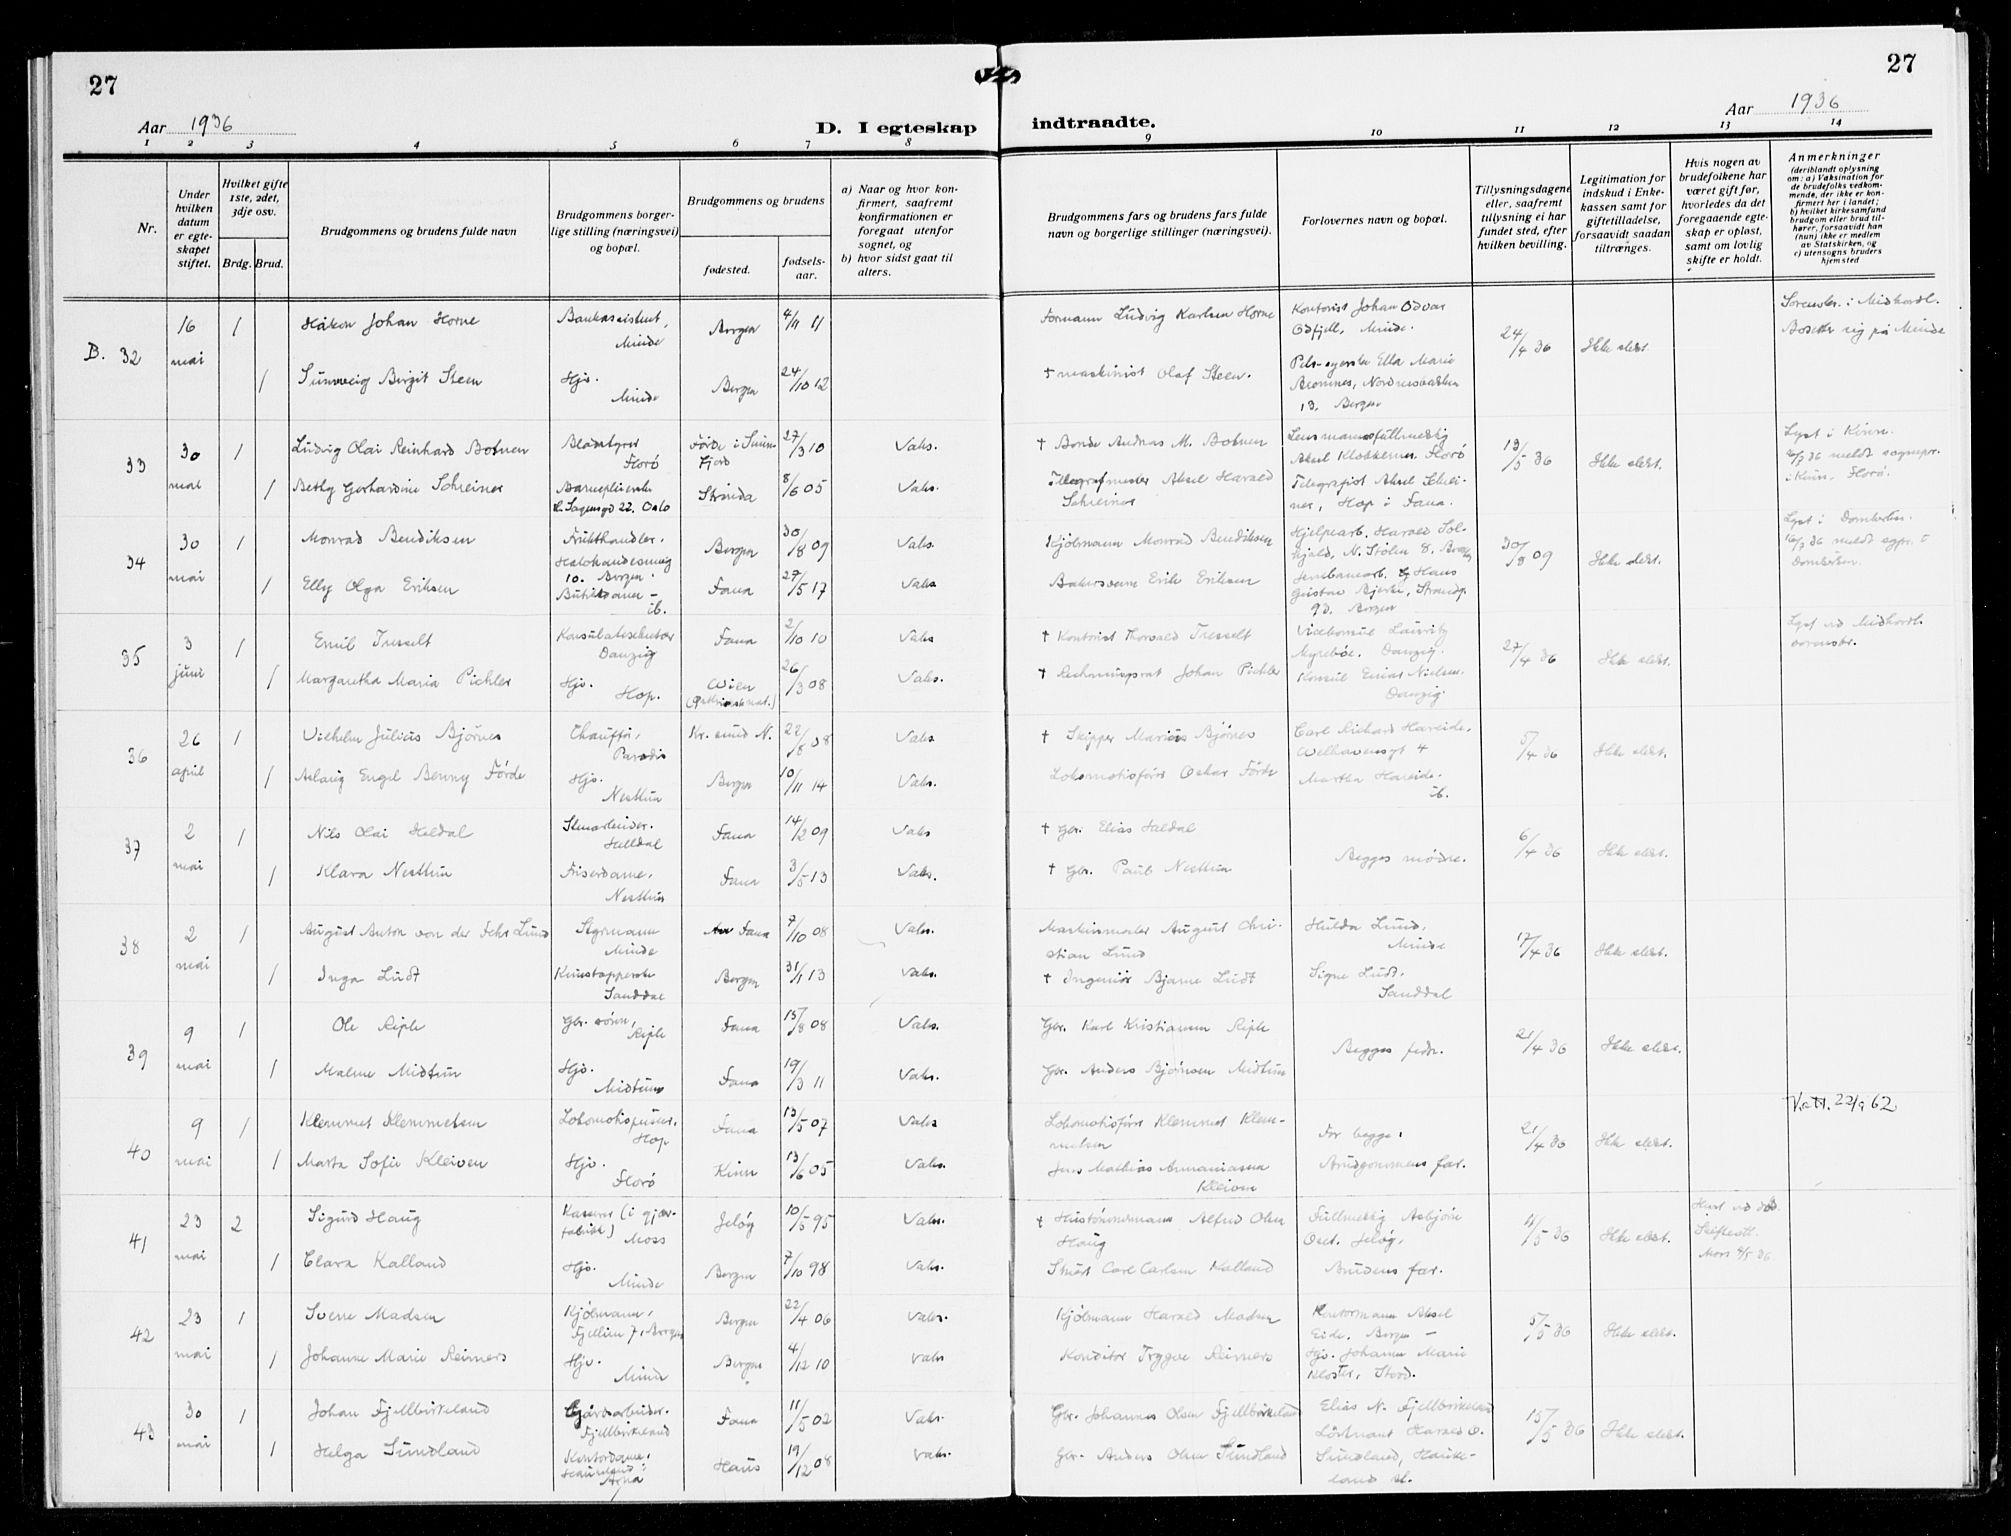 27
27
Aar 1936
D. I egteskap
indtraadte.
Aar 1936
1 2 3 4 5 6 7 8 9 10 11 12 13 14
Nr.
Under hvilken datum er egteskapet stiftet.
Hvilket gifte 1ste, 2det, 3dje osv.
Brdg. Brud.
Brudgommens og brudens fulde navn
Brudgommens borgerlige stilling (næringsvei) og bopæl.
Brudgommens og brudens
fødested.
fødselsaar.
a) Naar og hvor konfirmert, saafremt konfirmationen er foregaat utenfor sognet, og
b) hvor sidst gaat til alters.
Brudgommens fars og brudens fars fulde navn og borgerlige stillinger (næringsvei).
Forlovernes navn og bopæl.
Tillysningsdagene eller, saafremt tillysning ei har fundet sted, efter hvilken bevilling.
Legitimation for indskud i Enkekassen samt for giftetilladelse, forsaavidt saadan tiltrænges.
Hvis nogen av brudefolkene har været gift før, hvorledes da det foregaaende egteskap er opløst, samt om lovlig skifte er holdt.
Anmerkninger
(deriblandt oplysning om: a) Vaksination for de brudefolks vedkommende, der ikke er konfirmert her i landet;
b) hvilket kirkesamfund brudgom eller brud tilhører, forsaavidt han (hun) ikke er medlem av Statskirken, og
c) utensogns bruders hjemsted
B. 32 16 mai 1 Håkon Johan Horne Bankassistent, Minde Bergen 4/11 11 Formann Ludvig Karlsen Horne Kontorist Johan Odvar Odfjell, Minde. 24/4 36 Ikke slekt. Sorenskr. i Midhordl. Bosetter sig på Minde
1 Sunneveig Birgit Steen Hjv. Minde Bergen 24/10 12 † maskinist Olaf Steen. Ella Marie 13, Bergen
33 30 mai 1 Ludvig Olai Reinhard Botnen Bladstyrer Florø Førde i Sunnfjord 27/3 10 Vaks. † Bonde Andreas M. Botnen Lensmannsfullmektig Aksel Klokkernes Florø 13/5 36 Ikke slekt. Lyst i Kinn. 16/7 36 meldt sognepr. i Kinn, Florø.
1 Betty Gerhardine Schreiner Barnepleierske 22. Oslo Strinda 8/6 05 Vaks. Telegrafmester Aksel Harald Schreiner Telegrafist Aksel Schreiner, Hop i Fana.
34 30 mai 1 Monrad Bendiksen Frukthandler, 10. Bergen. Bergen 30/8 09 Vaks. Kjölmann Monrad Bendiksen Hjelpearb. Harald N. Stølen 8. Bergen 30/8 09 Ikke slekt. Lyst i Domkirken. 16/7 36 meldt sgpr. i Domkirken.
1 Elly Olga Eriksen Butikkdame – ib. Fana 27/5 17 Vaks Bakersvenn Erik Eriksen Jernbanearb. Hans Gustav Bjerke, Strandg. 9d. Bergen
35 3 juni 1 Emil Tresselt Konsulatsekretær Danzig Fana 2/10 10 Vaks † Kontorist Thorvald Tresselt Vicekonsul Lauritz Myrebøe. Danzig. 27/4 36 Ikke slekt. Lyst ved Midhordl. sorenskr.
1 Margaretha Maria Pichler Hjv. Hop. Wien 26/3 08 Vaks. † Rechnungsrat Johan Pichler Konsul Nielsen. Danzig.
36 26 april 1 Vilhelm Julius Bjørnes Chauffør, Paradis Kr.sund N. 22/8 08 Vaks † Skipper Marius Bjørnes Carl Richard Hareide, Welhavensgt 4 5/4 36 Ikke slekt.
1 Aslaug Engel Benny Førde Hjv. Nesttun Bergen 10/11 14 Vaks. Lokomotivfører Oskar Førde Martha Hareide. ib.
37 2 mai 1 Nils Olai Heldal Stenarbeider. Helldal Fana 14/2 09 Vaks † Gbr. Elias Heldal Begges mødre. 6/4 36 Ikke slekt.
1 Klara Nesttun Friserdame, Nesttun Fana 3/5 13 Vaks. † Gbr. Paul Nesttun
38 2 mai 1 August Anton von der Fehr Lund Styrmann Minde Fana 7/10 08 Vaks. Maskinmester August Christian Lund Hulda Lund, Minde 17/4 36 Ikke slekt.
1 Inga Ludt Sanddal Bergen 31/1 13 Vaks. † Ingeniør Bjarne Ludt Signe Ludt. Sanddal
39 9 mai 1 Ole Riple Gbr. sønn, Riple Fana 15/8 08 Vaks. Gbr. Karl Kristiansen Riple Begges fedre. 21/4 36 Ikke slekt.
1 Malene Midttun Hjv. Midttun Fana 19/3 11 Vaks. Gbr. Anders Bjørnsen Midttun
40 9 mai 1 Klemmet Klemmetsen Lokomotivpusser, Hop Fana 13/5 07 Vaks Lokomotivfører Klemmet Klemmetsen For begge: Brudgommens far. 21/4 36 Ikke slekt. V.att. 22/9 62
1 Marta Sofie Kleiven Hjv. Florø Kinn 13/6 05 Vaks. Jens Mathias Ananiassen Kleiven
41 23 mai 2 Sigurd Haug Kasserer (i gjærfabrikk) Moss Jeløy 10/5 95 Vaks. † Alfred Olsen Haug Fullmektig Asbjørn Jeløy, 11/5 36 Ikke slekt. Skifteatt. Moss 4/5 36
1 Clara Kalland Hjv. Minde Bergen 7/10 98 Vaks. Stuert Carl Carlsen Kalland Brudens far.
42 23 mai 1 Sverre Madsen Kjölmann, Fjellien 7, Bergen Bergen 22/4 06 Vaks. Kjölmann Harald Madsen Kontormann Aksel Eide. Bergen – 5/5 36 Ikke slekt.
1 Johanne Marie Reimers Hjv. Minde Bergen 4/12 10 Vaks Konditor Trygve Reimers Hjv. Johanne Marie Kloster, Stord.
43 30 mai 1 Johan Fjellbirkeland Gårdsarbeider. Fjellbirkeland Fana 11/5 02 Vaks. Gbr. Johannes Olsen Fjellbirkeland Elias N. Fjellbirkeland 15/5 36 Ikke slekt.
1 Helga Sundland Kontordame, Haukeland, Arna Haus 19/12 08 Vaks. Gbr. Anders Olsen Sundland Løitnant Harald O. Sundland, Haukeland st.